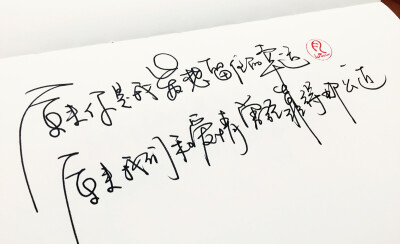 原来你是我最想留住的幸运
原来我们和爱情曾经靠得那么近